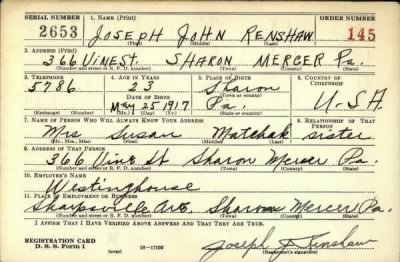 SERIAL NUMBER 1. NAME (Print) ORDER NUMBER
2653 JOSEPH JOHN RENSHAW 145
(First) (Middle) (Last)
2. ADDRESS (Print)
366 VINE ST. SHARON MERCER Pa.
(Number and street or R. F. D. number) (Town) (County) (State)
3. TELEPHONE 4. AGE IN YEARS 5. PLACE OF BIRTH 6. COUNTRY OF CITIZENSHIP
5786 23 Sharon
DATE OF BIRTH (Town or county)
May 25 1917 Pa. U.S.A.
(Exchange) (Number) (Mo.) (Day) (Yr.) (State or country)
7. NAME OF PERSON WHO WILL ALWAYS KNOW YOUR ADDRESS 8. RELATIONSHIP OF THAT PERSON
Mrs Susan Matchak sister
(Mr., Mrs., Miss) (First) (Middle) (Last)
9. ADDRESS OF THAT PERSON
366 Vine St Sharon Mercer Pa.
(Number and street or R. F. D. number) (Town) (County) (State)
10. EMPLOYER'S NAME
Westinghouse
11. PLACE OF EMPLOYMENT OR BUSINESS
Sharpsville Ave. Sharon Mercer Pa.
(Number and street or R. F. D. number) (Town) (County) (State)
I AFFIRM THAT I HAVE VERIFIED ABOVE ANSWERS AND THAT THEY ARE TRUE.
REGISTRATION CARD
D. S. S. Form 1 (over) 16-17105 Joseph J Renshaw
(Registrant's signature)